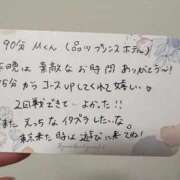 90分 Mくん (品川プリンスホテル)
昨晩は 素敵な お時間 ありがとう〜!
75分から コースUPしてくれて 嬉しい。
2回戦できて… よかった!!
また えっちな イタズラ したいな。
東京来た時は 遊びに来てね!